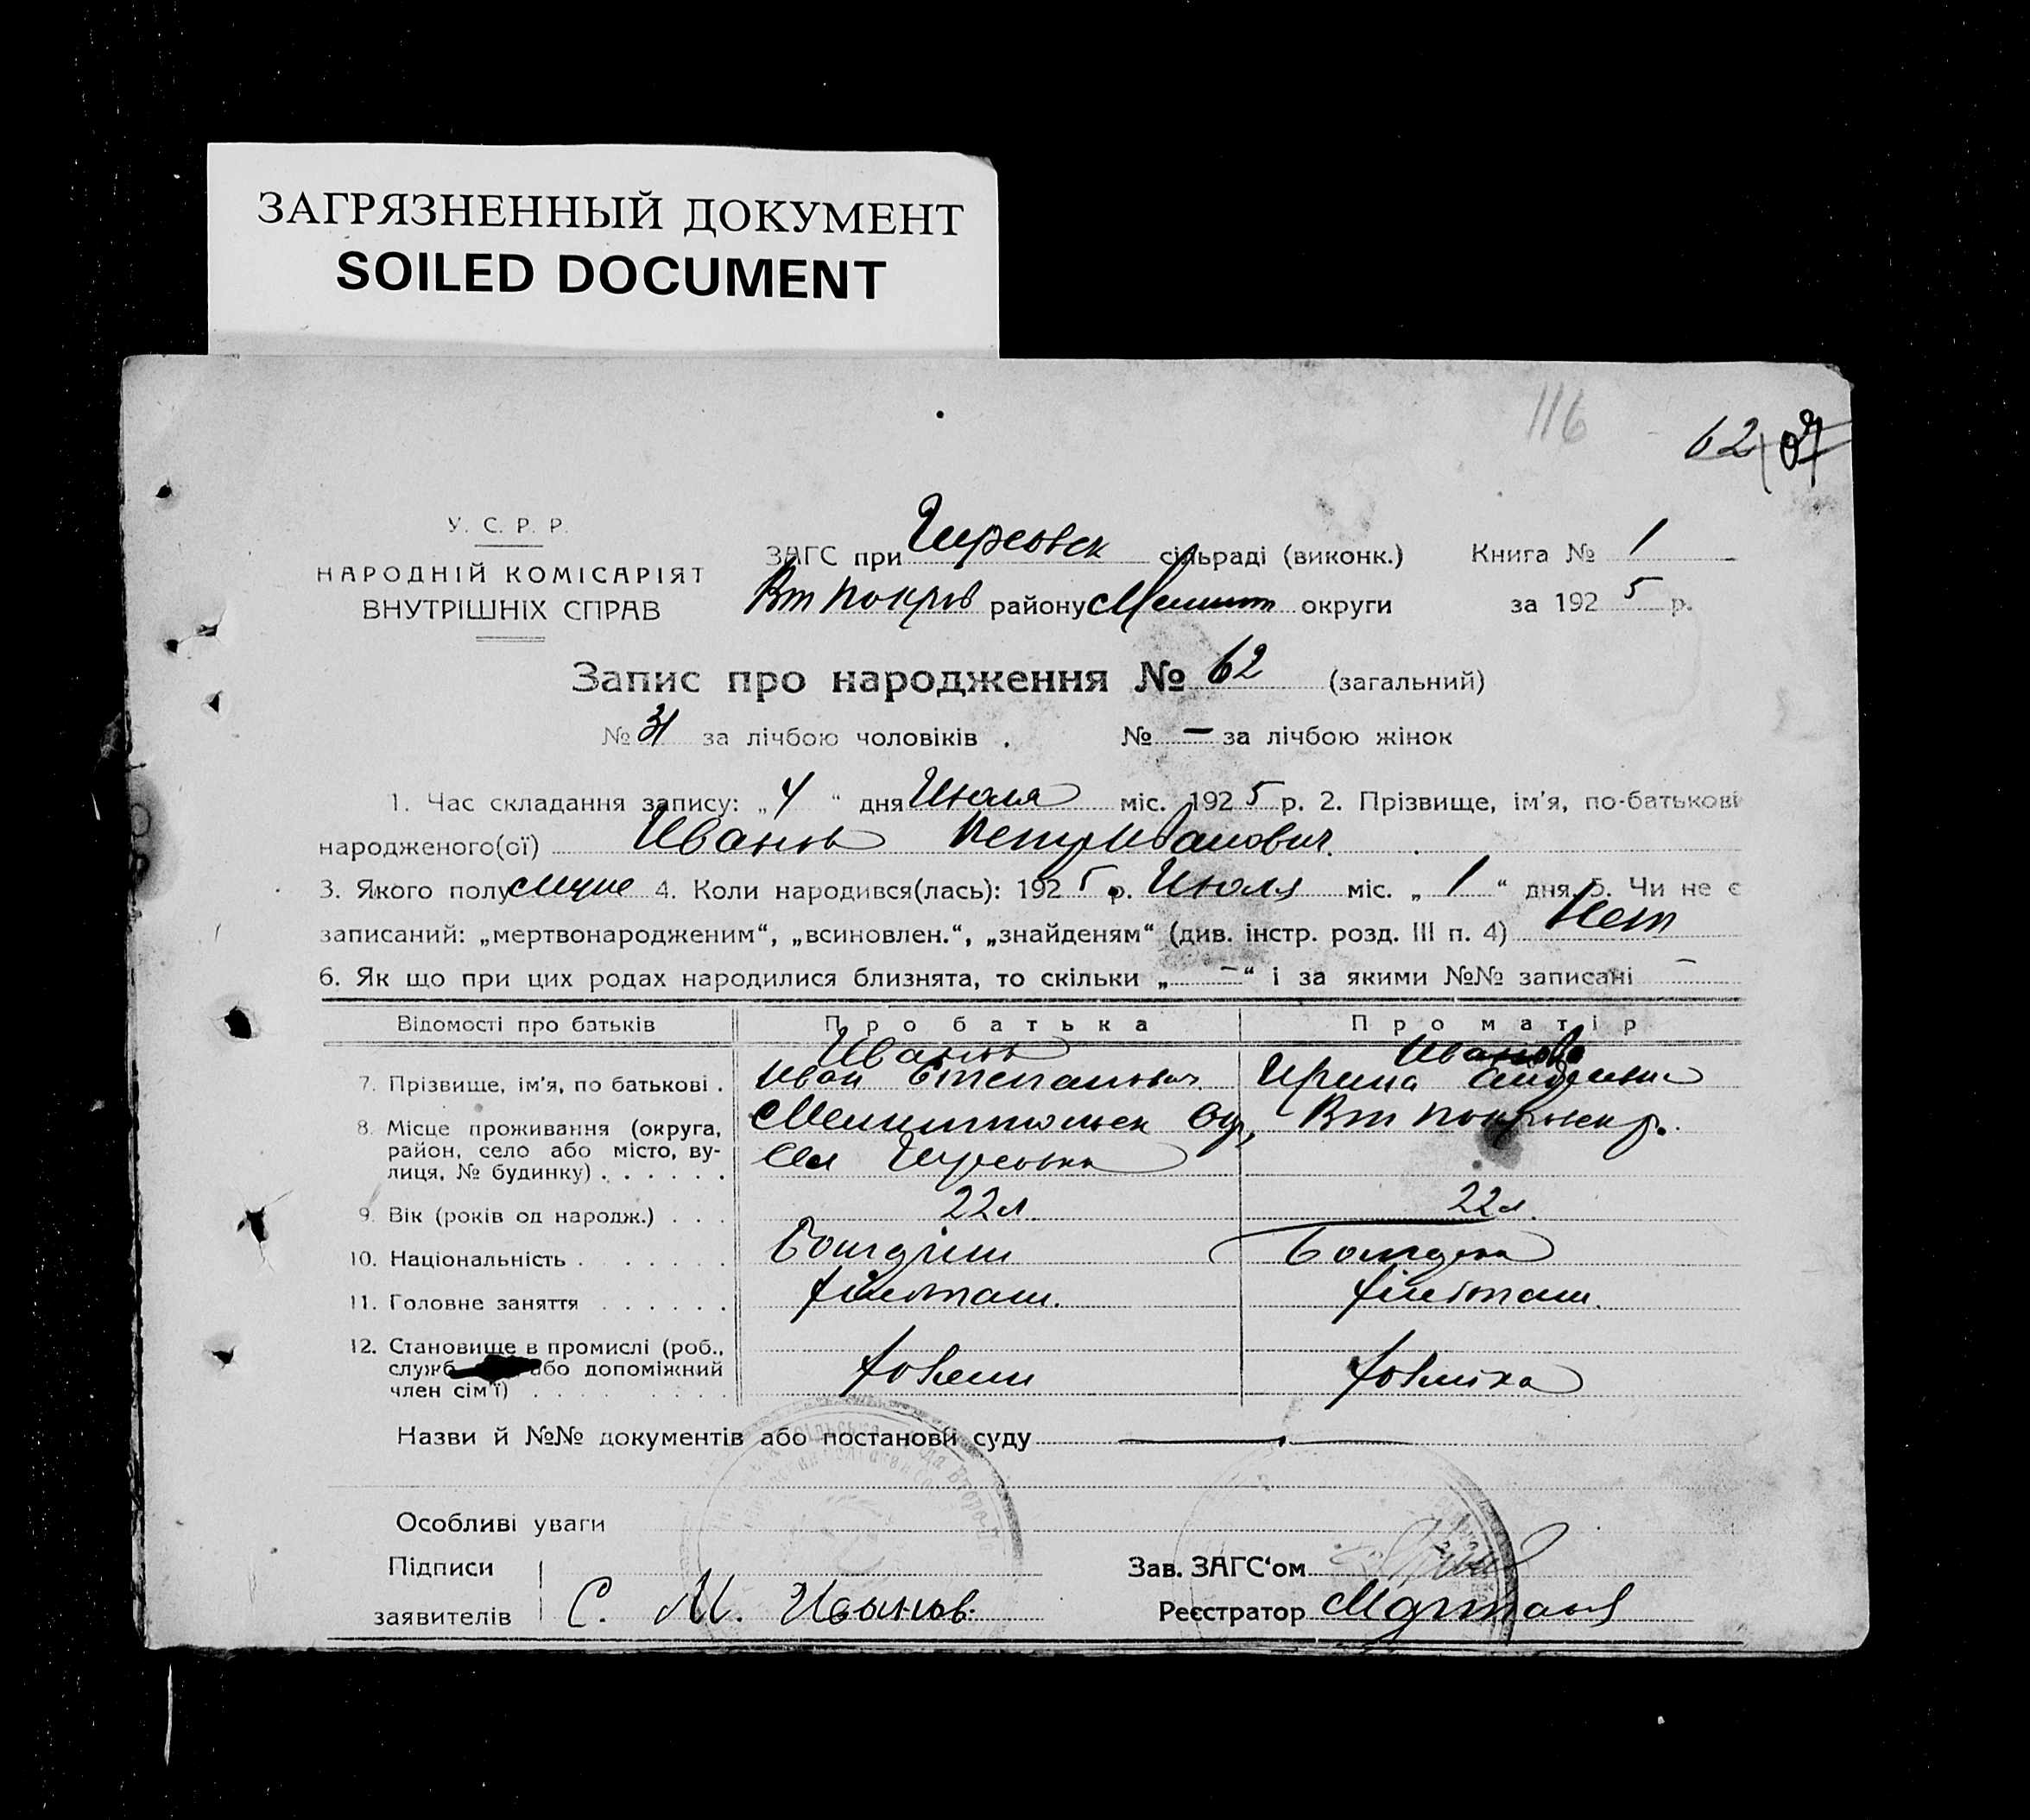 ЗАГРЯЗНЕННЫЙ ДОКУМЕНТ
SOILED DOCUMENT
116
62
У. С. Р. Р.
НАРОДНІЙ КОМІСАРІЯТ
ВНУТРІШНІХ СПРАВ
ЗАГС при Гирсовск сільраді (виконк.) Книга № 1
Вт Покров району Мелит округи за 1925 р.
Запис про народження № 62 (загальний)
№ 31 за лічбою чоловіків . № — за лічбою жінок
1. Час складання запису: „4“ дня Июля міс. 1925 р. 2. Прізвище, ім'я, по-батькові
народженого(ої) Иванов Петр Иванович.
3. Якого полу муже 4. Коли народився(лась): 1925 р. Июля міс. „1“ дня. 5. Чи не є
записаний: „мертвонародженим“, „всиновлен.“, „знайденям“ (див. інстр. розд. III п. 4) Нет
6. Як що при цих родах народилися близнята, то скільки „—“ і за якими №№ записані —
Відомості про батьків Про батька Про матір
Иванов Иванова
7. Прізвище, ім'я, по батькові . Иван Степанович. Ирина
8. Місце проживання (округа, район, село або місто, вулиця, № будинку) Мелитопольск Окр, Вт Покровск р.
Сел Гирсовка
9. Вік (років од народж.) . . . 22 л. 22 л.
10. Національність . . . . . . Болгарин Болгарка
11. Головне заняття . . . . . . хлібопаш. хлібопаш.
12. Становище в промислі (роб.,
служб або допоміжний
член сім'ї) . . . . . . . .
Назви й №№ документів або постанови суду —
Особливі уваги
Підписи
заявителів С. М. Иванов. Зав. ЗАГС‘ом
Реєстратор